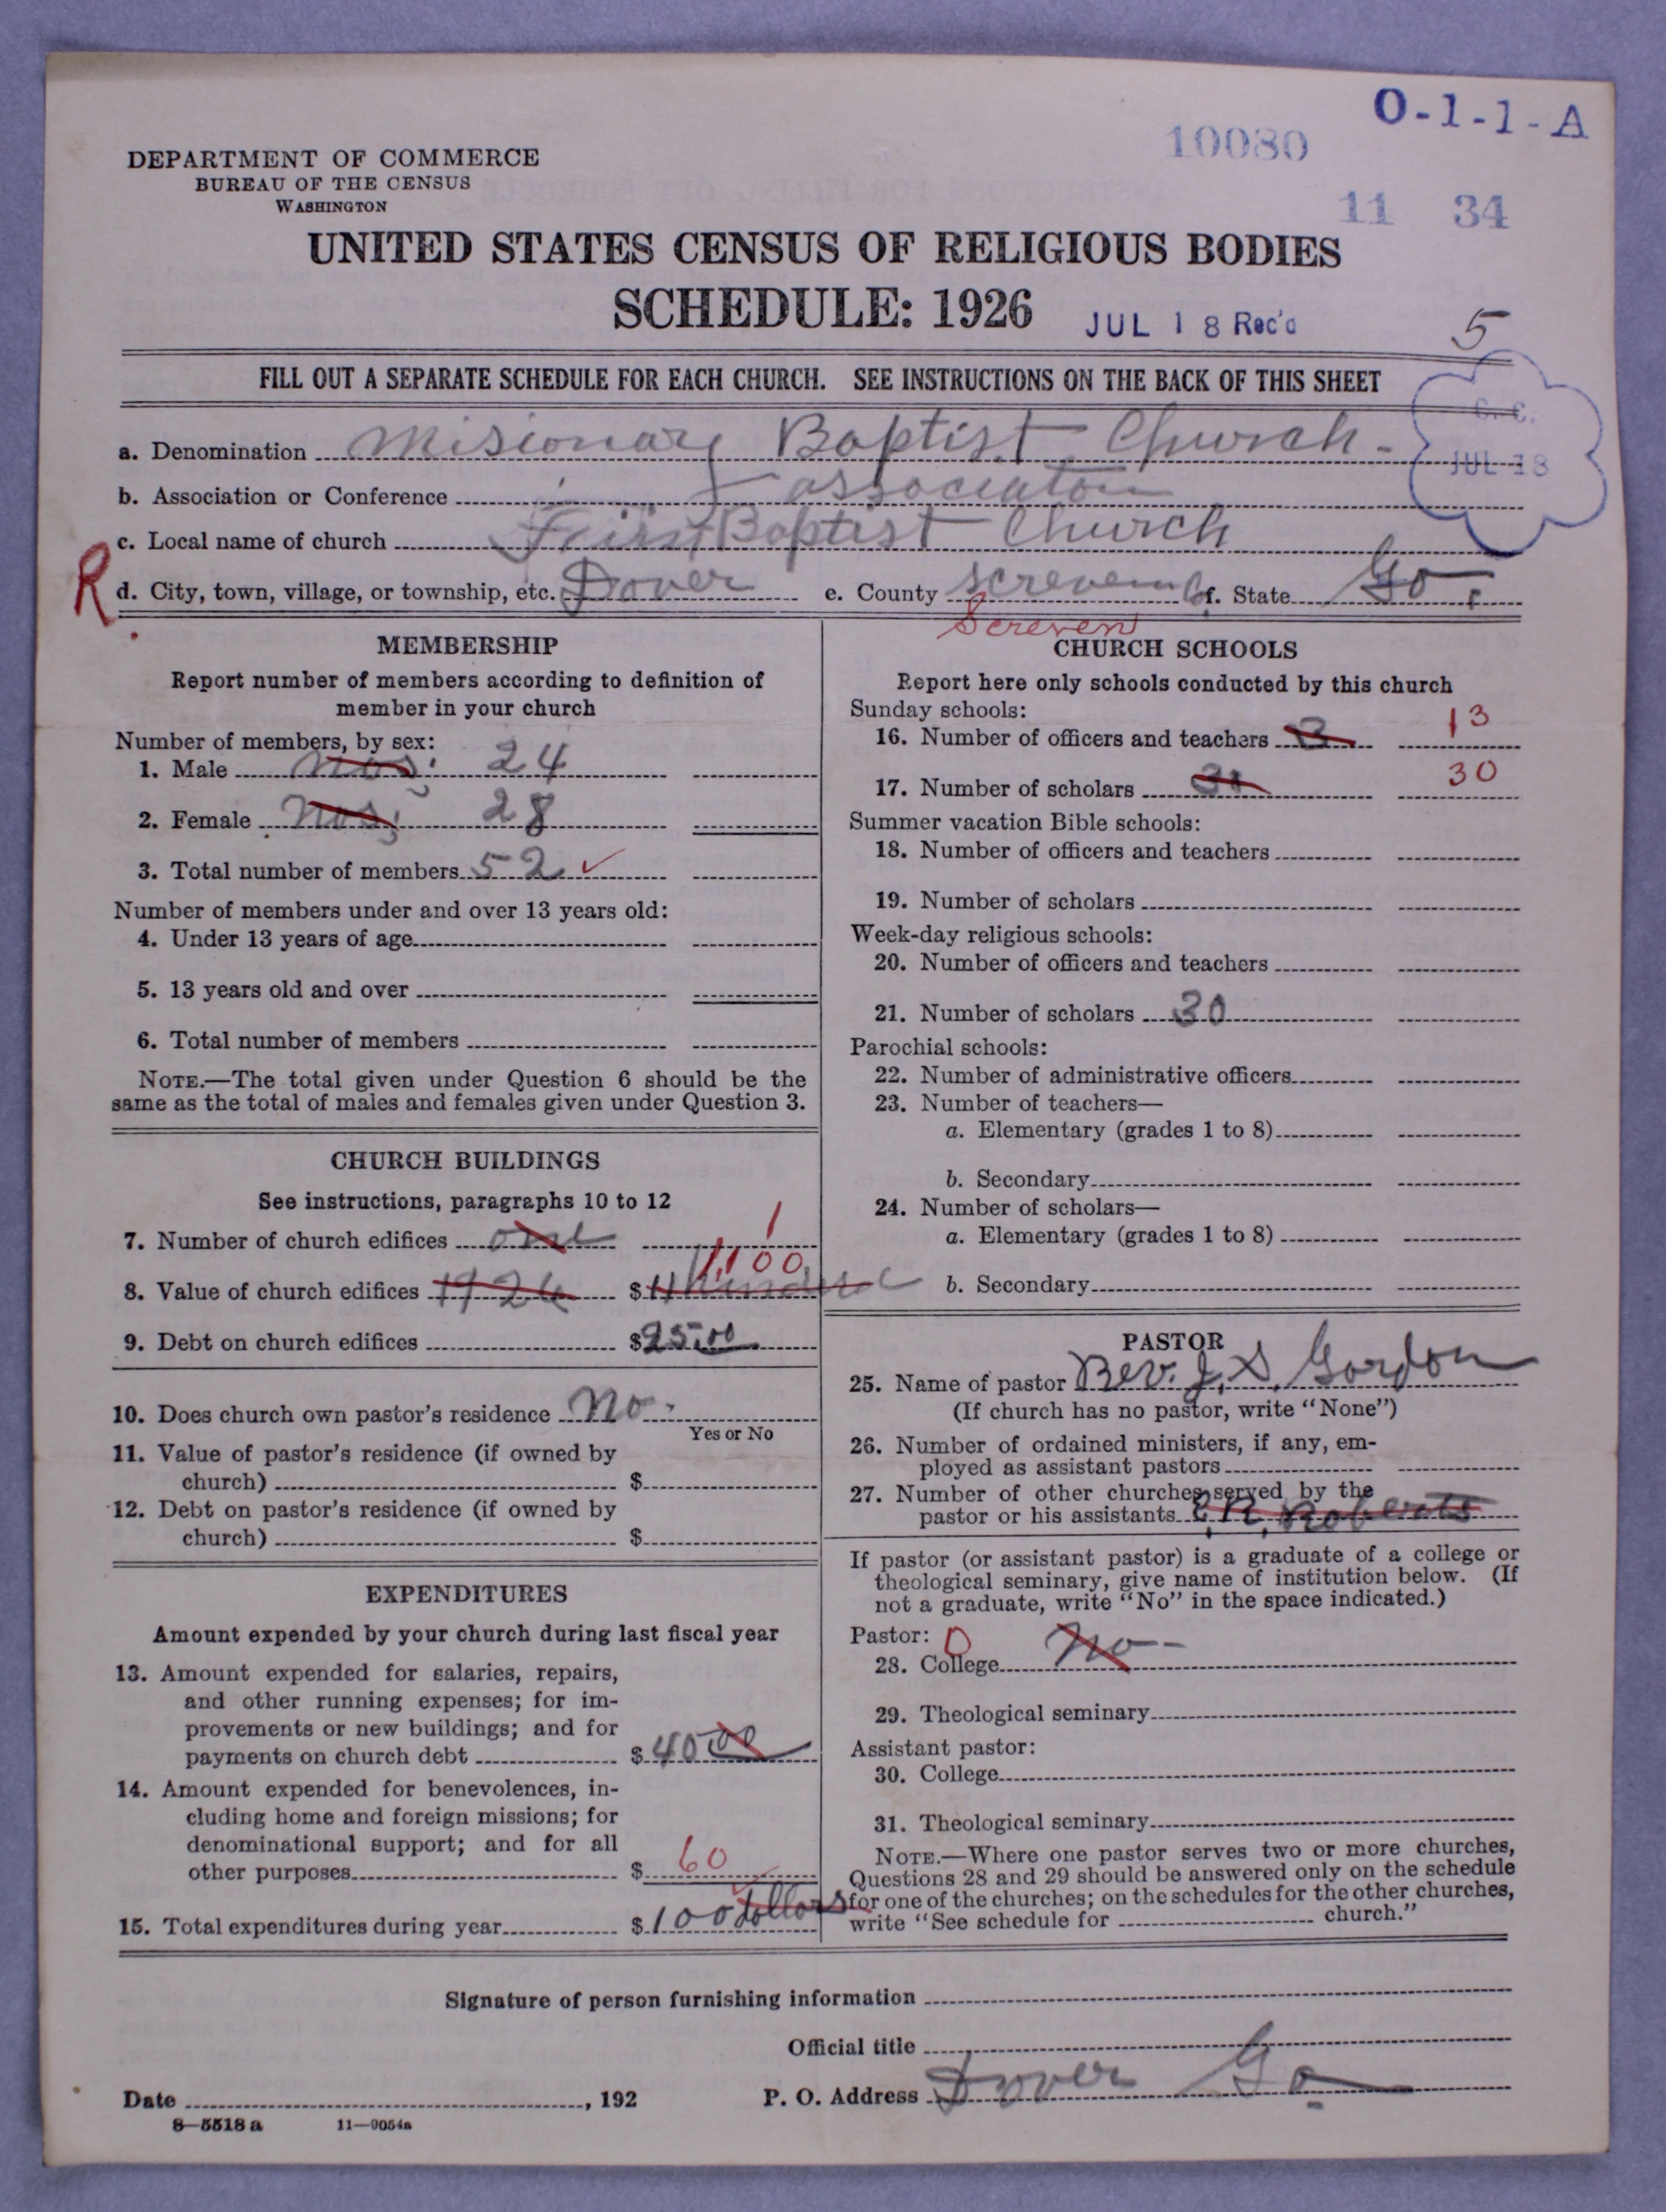 O-1-1-A
10080
11 34
DEPARTMENT OF COMMERCE
BUREAU OF THE CENSUS
WASHINGTON
UNITED STATES CENSUS OF RELIGIOUS BODIES
SCHEDULE: 1926
JUL 18 Rec'd
5
FILL OUT A SEPARATE SCHEDULE FOR EACH CHURCH. SEE INSTRUCTIONS ON THE BACK OF THIS SHEET
C. C.
JUL 18
a. Denomination Misionary Baptist Church -
b. Association or Conference association
c. Local name of church First Baptist Church
R.
d. City, town, village, or township, etc. Dover e. County Screven f. State Ga.
Screven
MEMBERSHIP
Report number of members according to definition of
member in your church
Number of members, by sex:
1. Male nos: 24
2. Female nos; 28
3. Total number of members 52 ✓
Number of members under and over 13 years old:
4. Under 13 years of age
5. 13 years old and over
6. Total number of members
NOTE.—The total given under Question 6 should be the
same as the total of males and females given under Question 3.
CHURCH BUILDINGS
See instructions, paragraphs 10 to 12
7. Number of church edifices one 1
8. Value of church edifices 1926 $ 11 hundred 1,100
9. Debt on church edifices $ 25.00
10. Does church own pastor's residence No.
Yes or No
11. Value of pastor's residence (if owned by
church) $
12. Debt on pastor's residence (if owned by
church) $
EXPENDITURES
Amount expended by your church during last fiscal year
13. Amount expended for salaries, repairs,
and other running expenses; for im-
provements or new buildings; and for
payments on church debt $ 40.00
14. Amount expended for benevolences, in-
cluding home and foreign missions; for
denominational support; and for all
other purposes $ 60
15. Total expenditures during year $ 100 dollars
CHURCH SCHOOLS
Report here only schools conducted by this church
Sunday schools:
16. Number of officers and teachers 13 13
17. Number of scholars 30 30
Summer vacation Bible schools:
18. Number of officers and teachers
19. Number of scholars
Week-day religious schools:
20. Number of officers and teachers
21. Number of scholars 30
Parochial schools:
22. Number of administrative officers
23. Number of teachers—
a. Elementary (grades 1 to 8)
b. Secondary
24. Number of scholars—
a. Elementary (grades 1 to 8)
b. Secondary
PASTOR
25. Name of pastor Rev. J. S. Gordon
(If church has no pastor, write "None")
26. Number of ordained ministers, if any, em-
ployed as assistant pastors
27. Number of other churches served by the
pastor or his assistants E. R. Roberts
If pastor (or assistant pastor) is a graduate of a college or
theological seminary, give name of institution below. (If
not a graduate, write "No" in the space indicated.)
Pastor: 0
28. College No -
29. Theological seminary
Assistant pastor:
30. College
31. Theological seminary
NOTE.—Where one pastor serves two or more churches,
Questions 28 and 29 should be answered only on the schedule
for one of the churches; on the schedules for the other churches,
write "See schedule for church."
Signature of person furnishing information
Official title
Date , 192 P. O. Address Dover Ga
8—5518a 11—9054a